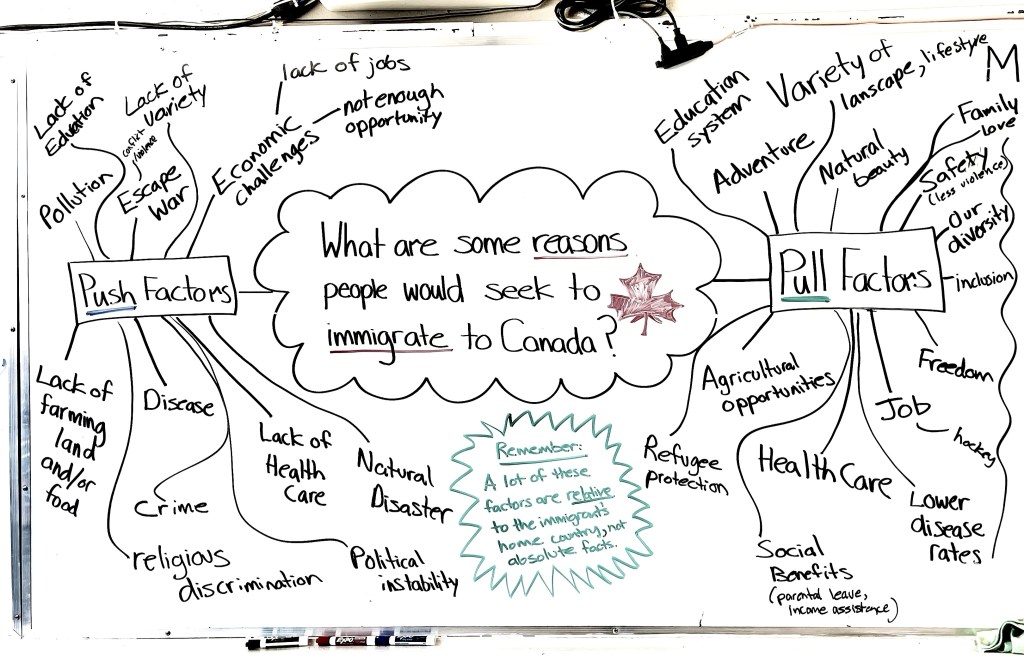 What are some reasons
people would seek to
immigrate to Canada?
Push Factors
Lack of
Eduation
Pollution
Lack of
variety
conflict
/violence
Escape
War
Economic
challenges
lack of jobs
not enough
opportunity
Lack of
farming
land
and/or
food
Disease
Crime
religious
discrimination
Lack of
Health
Care
Natural
Disaster
Political
instability
Remember:
A lot of these
factors are relative
to the immigrant's
home country, not
absolute facts.
Pull Factors
Education
system
Adventure
Variety of
lanscape, lifestyle
Natural
beauty
Family
Love
Safety
(less violence)
Our
diversity
inclusion
Freedom
Job
hockey
Lower
disease
rates
Health Care
Social
Benefits
(parental leave,
income assistance)
Agricultural
opportunities
Refugee
protection
M
EXPO